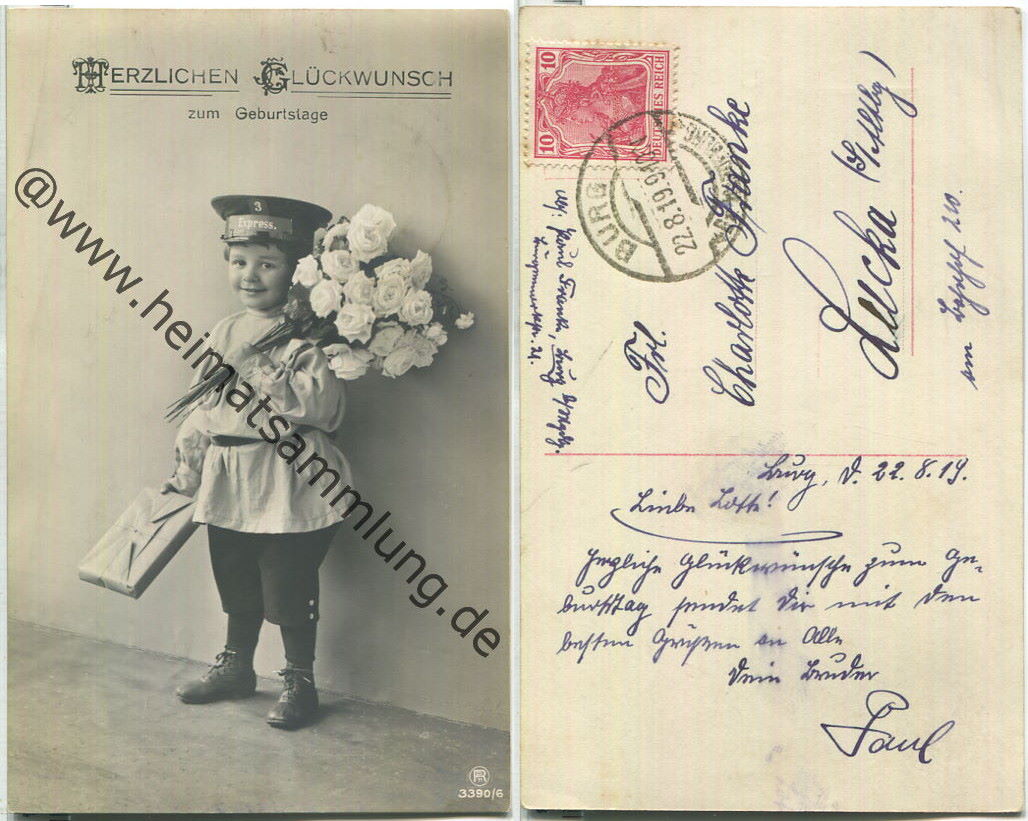 HERZLICHEN GLÜCKWUNSCH
zum Geburtstage
3
Express.
@www.heimatsammlung.de
3390/6
10 10
DEUTSCHES REICH
BURG
22.8.19
Frl.
Charlotte Franke
Lucka
Burg, d. 22.8.19.
Liebe Lotte!
Herzliche Glückwünsche zum Ge-
burtstag sendet Dir mit den
besten Grüßen an Alle
Dein Bruder
Paul